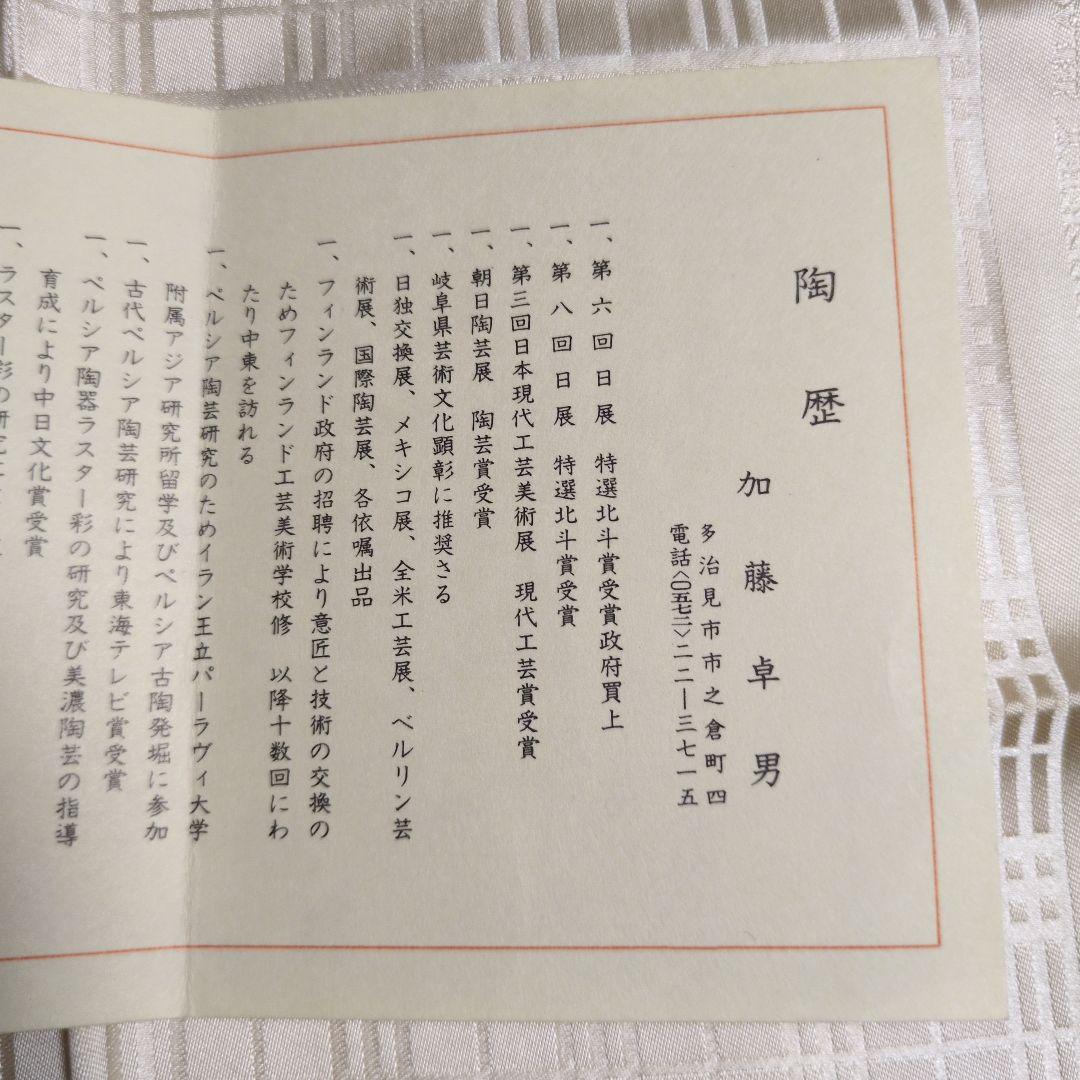 陶歴
加藤卓男
多治見市市之倉町四
電話〈〇五七二〉二二ー三七一五
一、第六回日展　特選北斗賞受賞政府買上
一、第八回日展　特選北斗賞受賞
一、第三回日本現代工芸美術展　現代工芸賞受賞
一、朝日陶芸展　陶芸賞受賞
一、岐阜県芸術文化顕彰に推奨さる
一、日独交換展、メキシコ展、全米工芸展、ベルリン芸
術展、国際陶芸展、各依嘱出品
一、フィンランド政府の招聘により意匠と技術の交換の
ためフィンランド工芸美術学校修　以降十数回にわ
たり中東を訪れる
一、ペルシア陶芸研究のためイラン王立パーラヴィ大学
附属アジア研究所留学及びペルシア古陶発堀に参加
一、古代ペルシア陶芸研究により東海テレビ賞受賞
一、ペルシア陶器ラスター彩の研究及び美濃陶芸の指導
育成により中日文化賞受賞
一、ラスター彩の研究